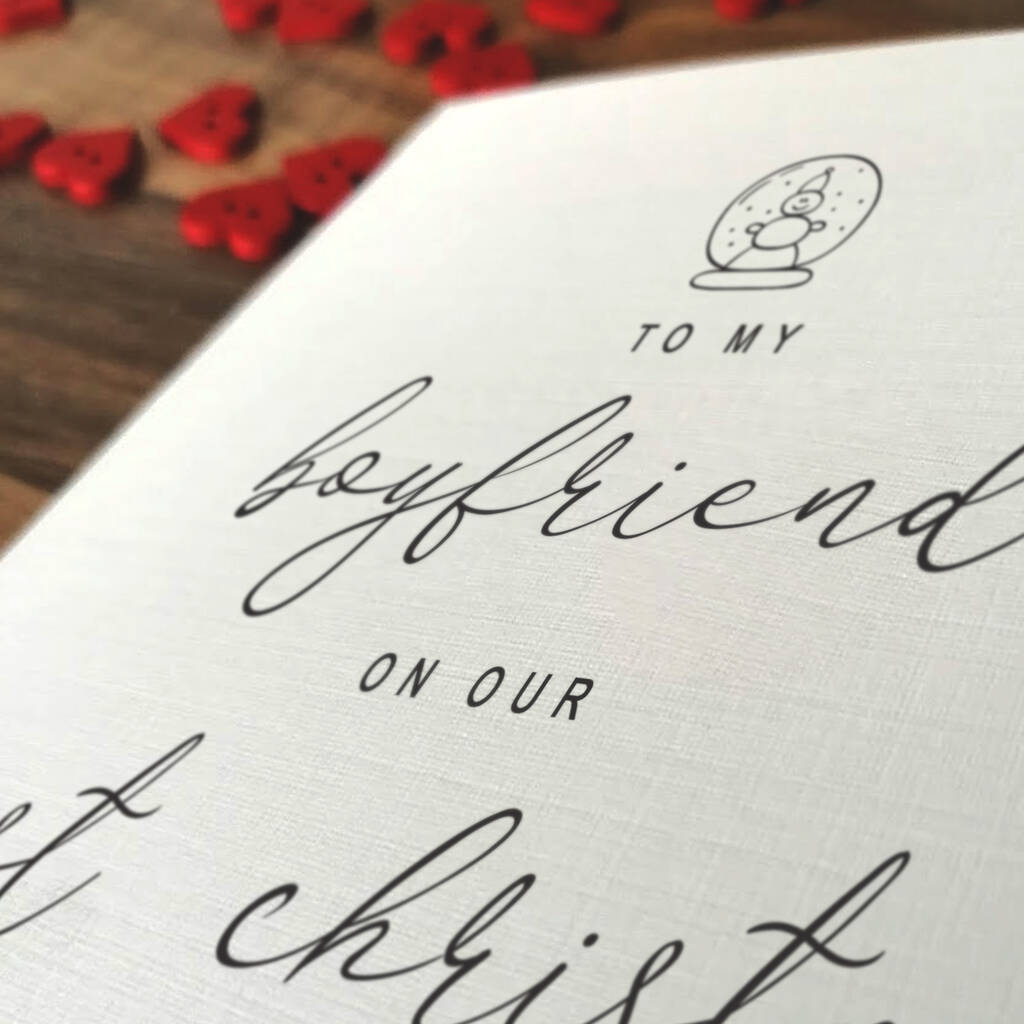 TO MY
boyfriend
ON OUR
st christ